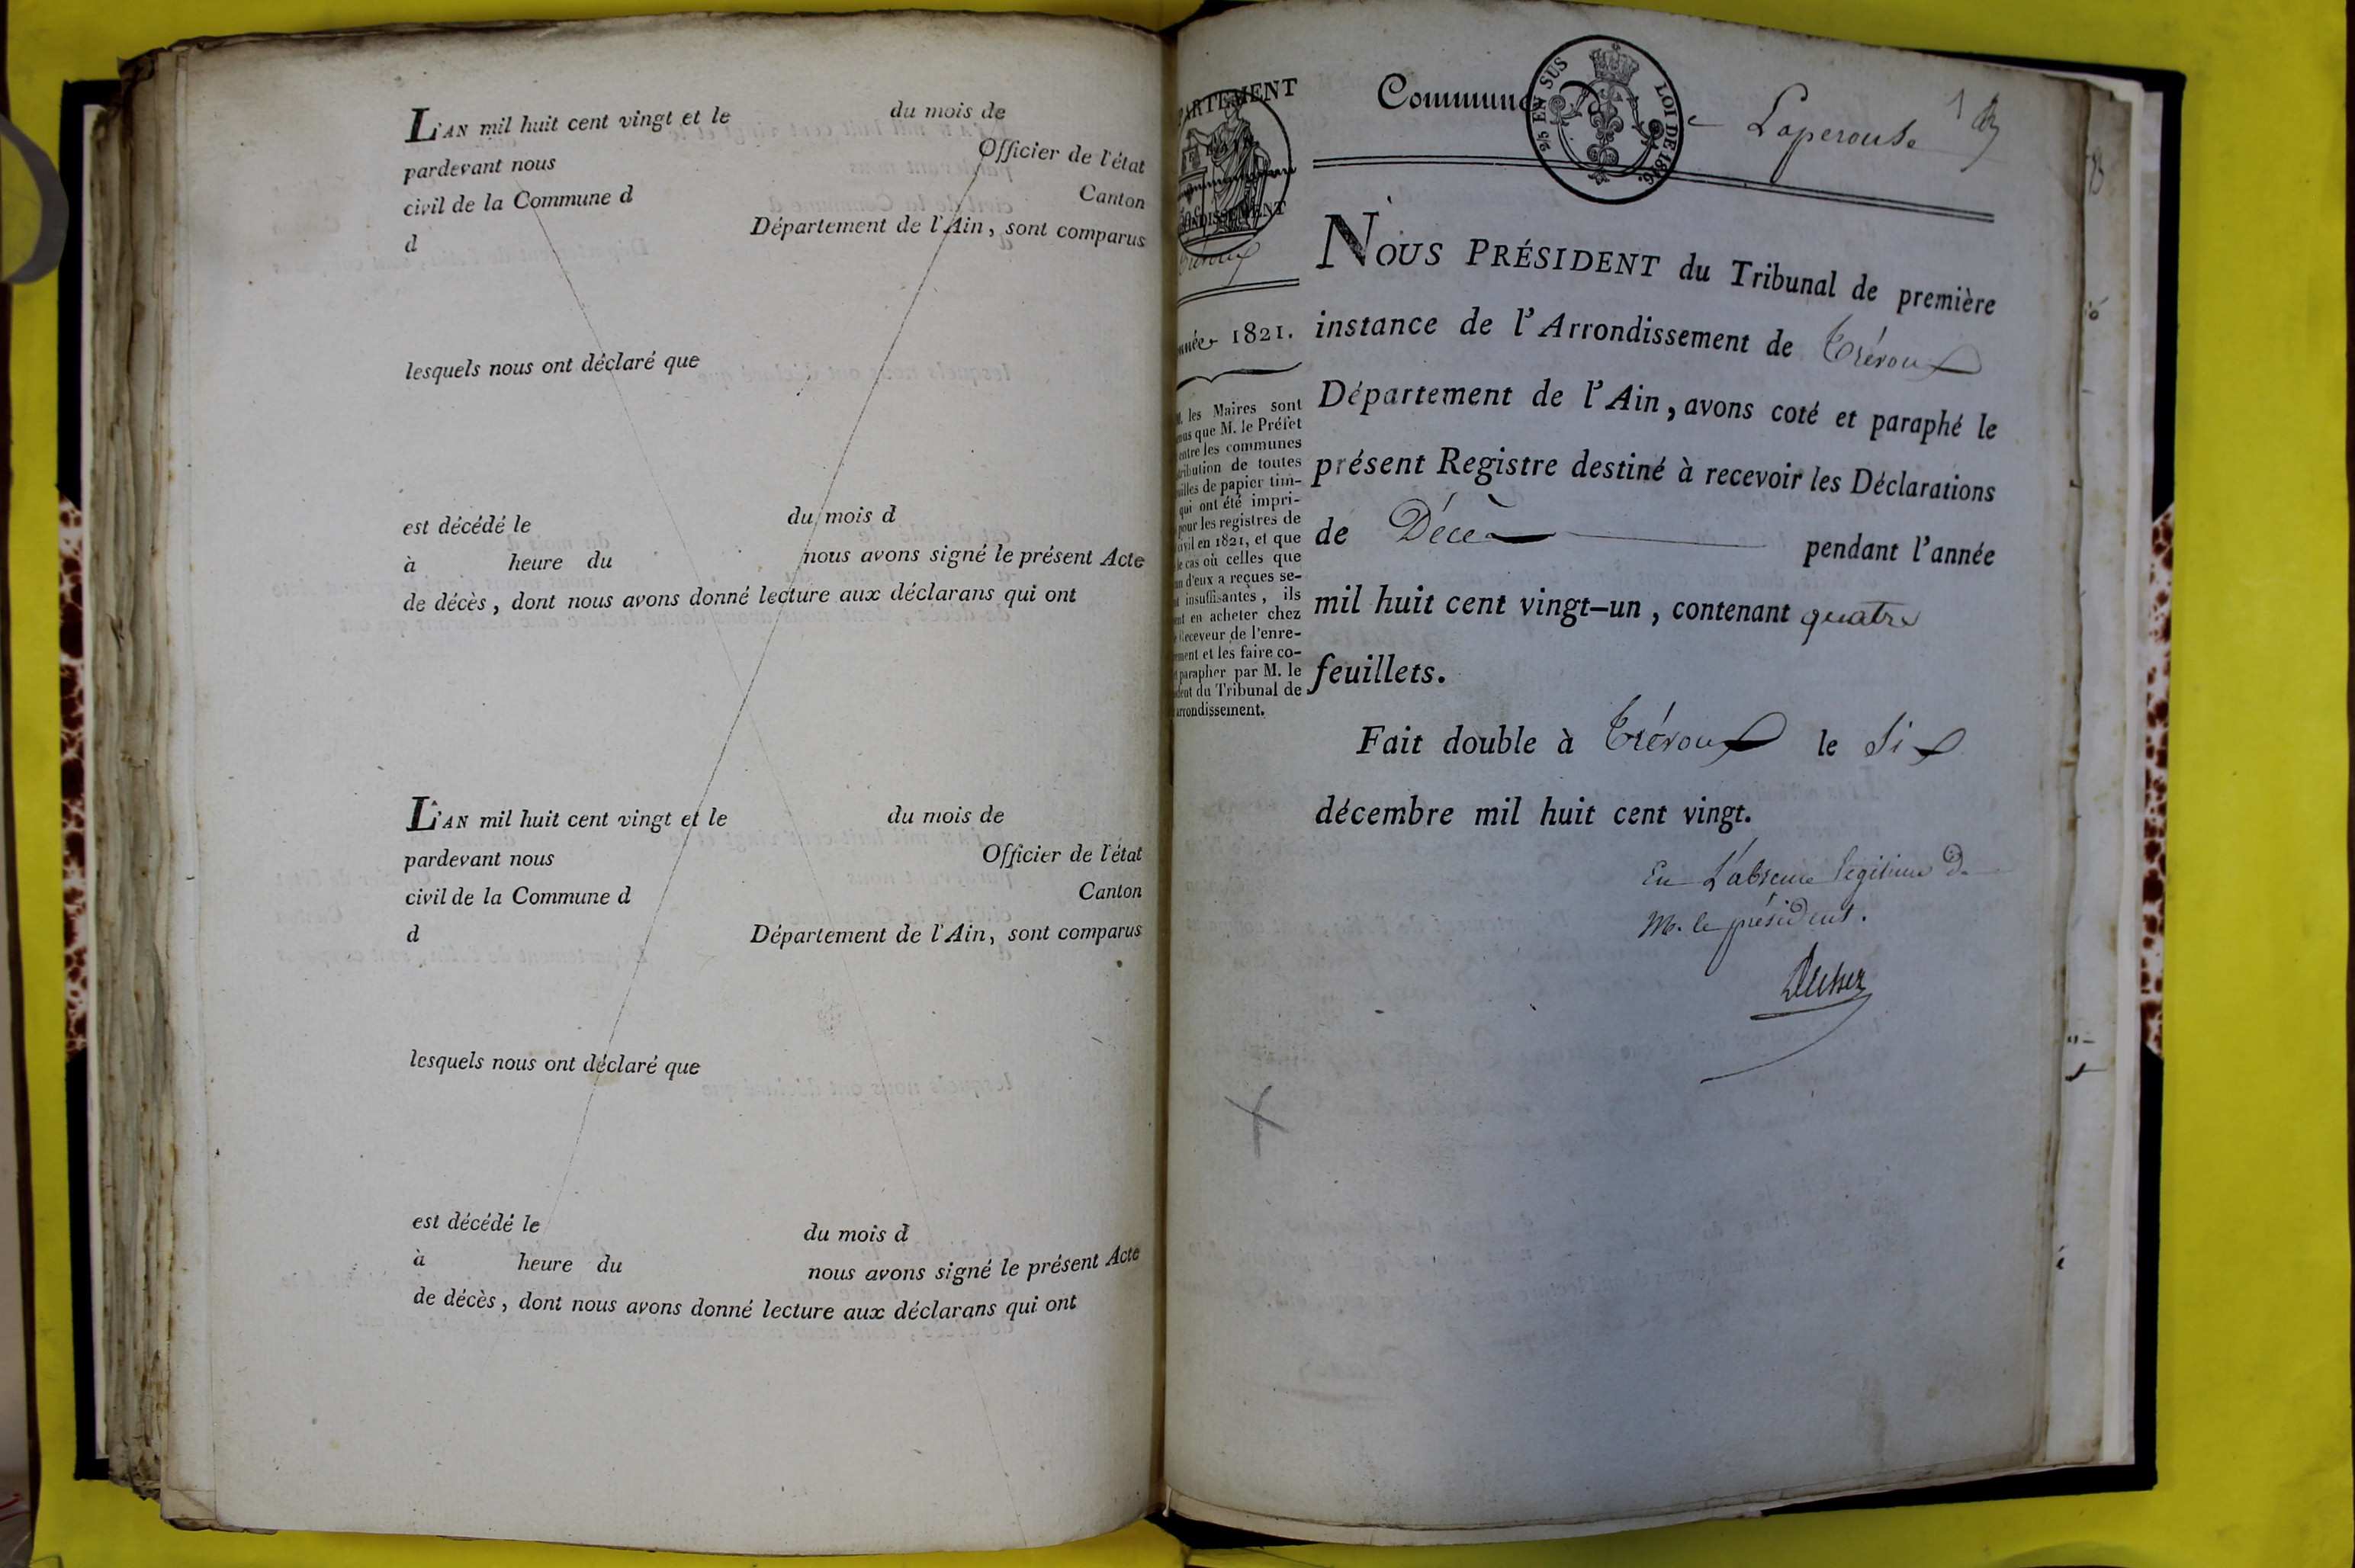 L'AN mil huit cent vingt et le du mois de
pardevant nous Officier de l'état
civil de la Commune d Canton
d Département de l'Ain, sont comparus
lesquels nous ont déclaré que
est décédé le du mois d
à heure du nous avons signé le présent Acte
de décès, dont nous avons donné lecture aux déclarans qui ont
L'AN mil huit cent vingt et le du mois de
pardevant nous Officier de l'état
civil de la Commune d Canton
d Département de l'Ain, sont comparus
lesquels nous ont déclaré que
est décédé le du mois d
à heure du nous avons signé le présent Acte
de décès, dont nous avons donné lecture aux déclarans qui ont
ARTEMENT
NDISSEMENT
Trévoux
nnée 1821.
M. les Maires sont
nus que M. le Préfet
entre les communes
tribution de toutes
uilles de papier tim-
qui ont été impri-
pour les registres de
civil en 1821, et que
le cas où celles que
un d'eux a reçues se-
nt insuffisantes, ils
ent en acheter chez
e Receveur de l'enre-
ement et les faire co-
t parapher par M. le
ident du Tribunal de
arrondissement.
Commune
2/5 EN SUS
LOI DE 1816.
Laperouse
1
NOUS PRÉSIDENT du Tribunal de première
instance de l'Arrondissement de Trévoux
Département de l'Ain, avons coté et paraphé le
présent Registre destiné à recevoir les Déclarations
de Décès pendant l'année
mil huit cent vingt-un, contenant quatre
feuillets.
Fait double à Trévoux le Six
décembre mil huit cent vingt.
En L'absence légitime de
M. le président.